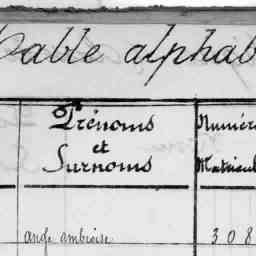 Table alphab
Prénoms
et
Surnoms
Numéro
Matricul
ange ambroise
308